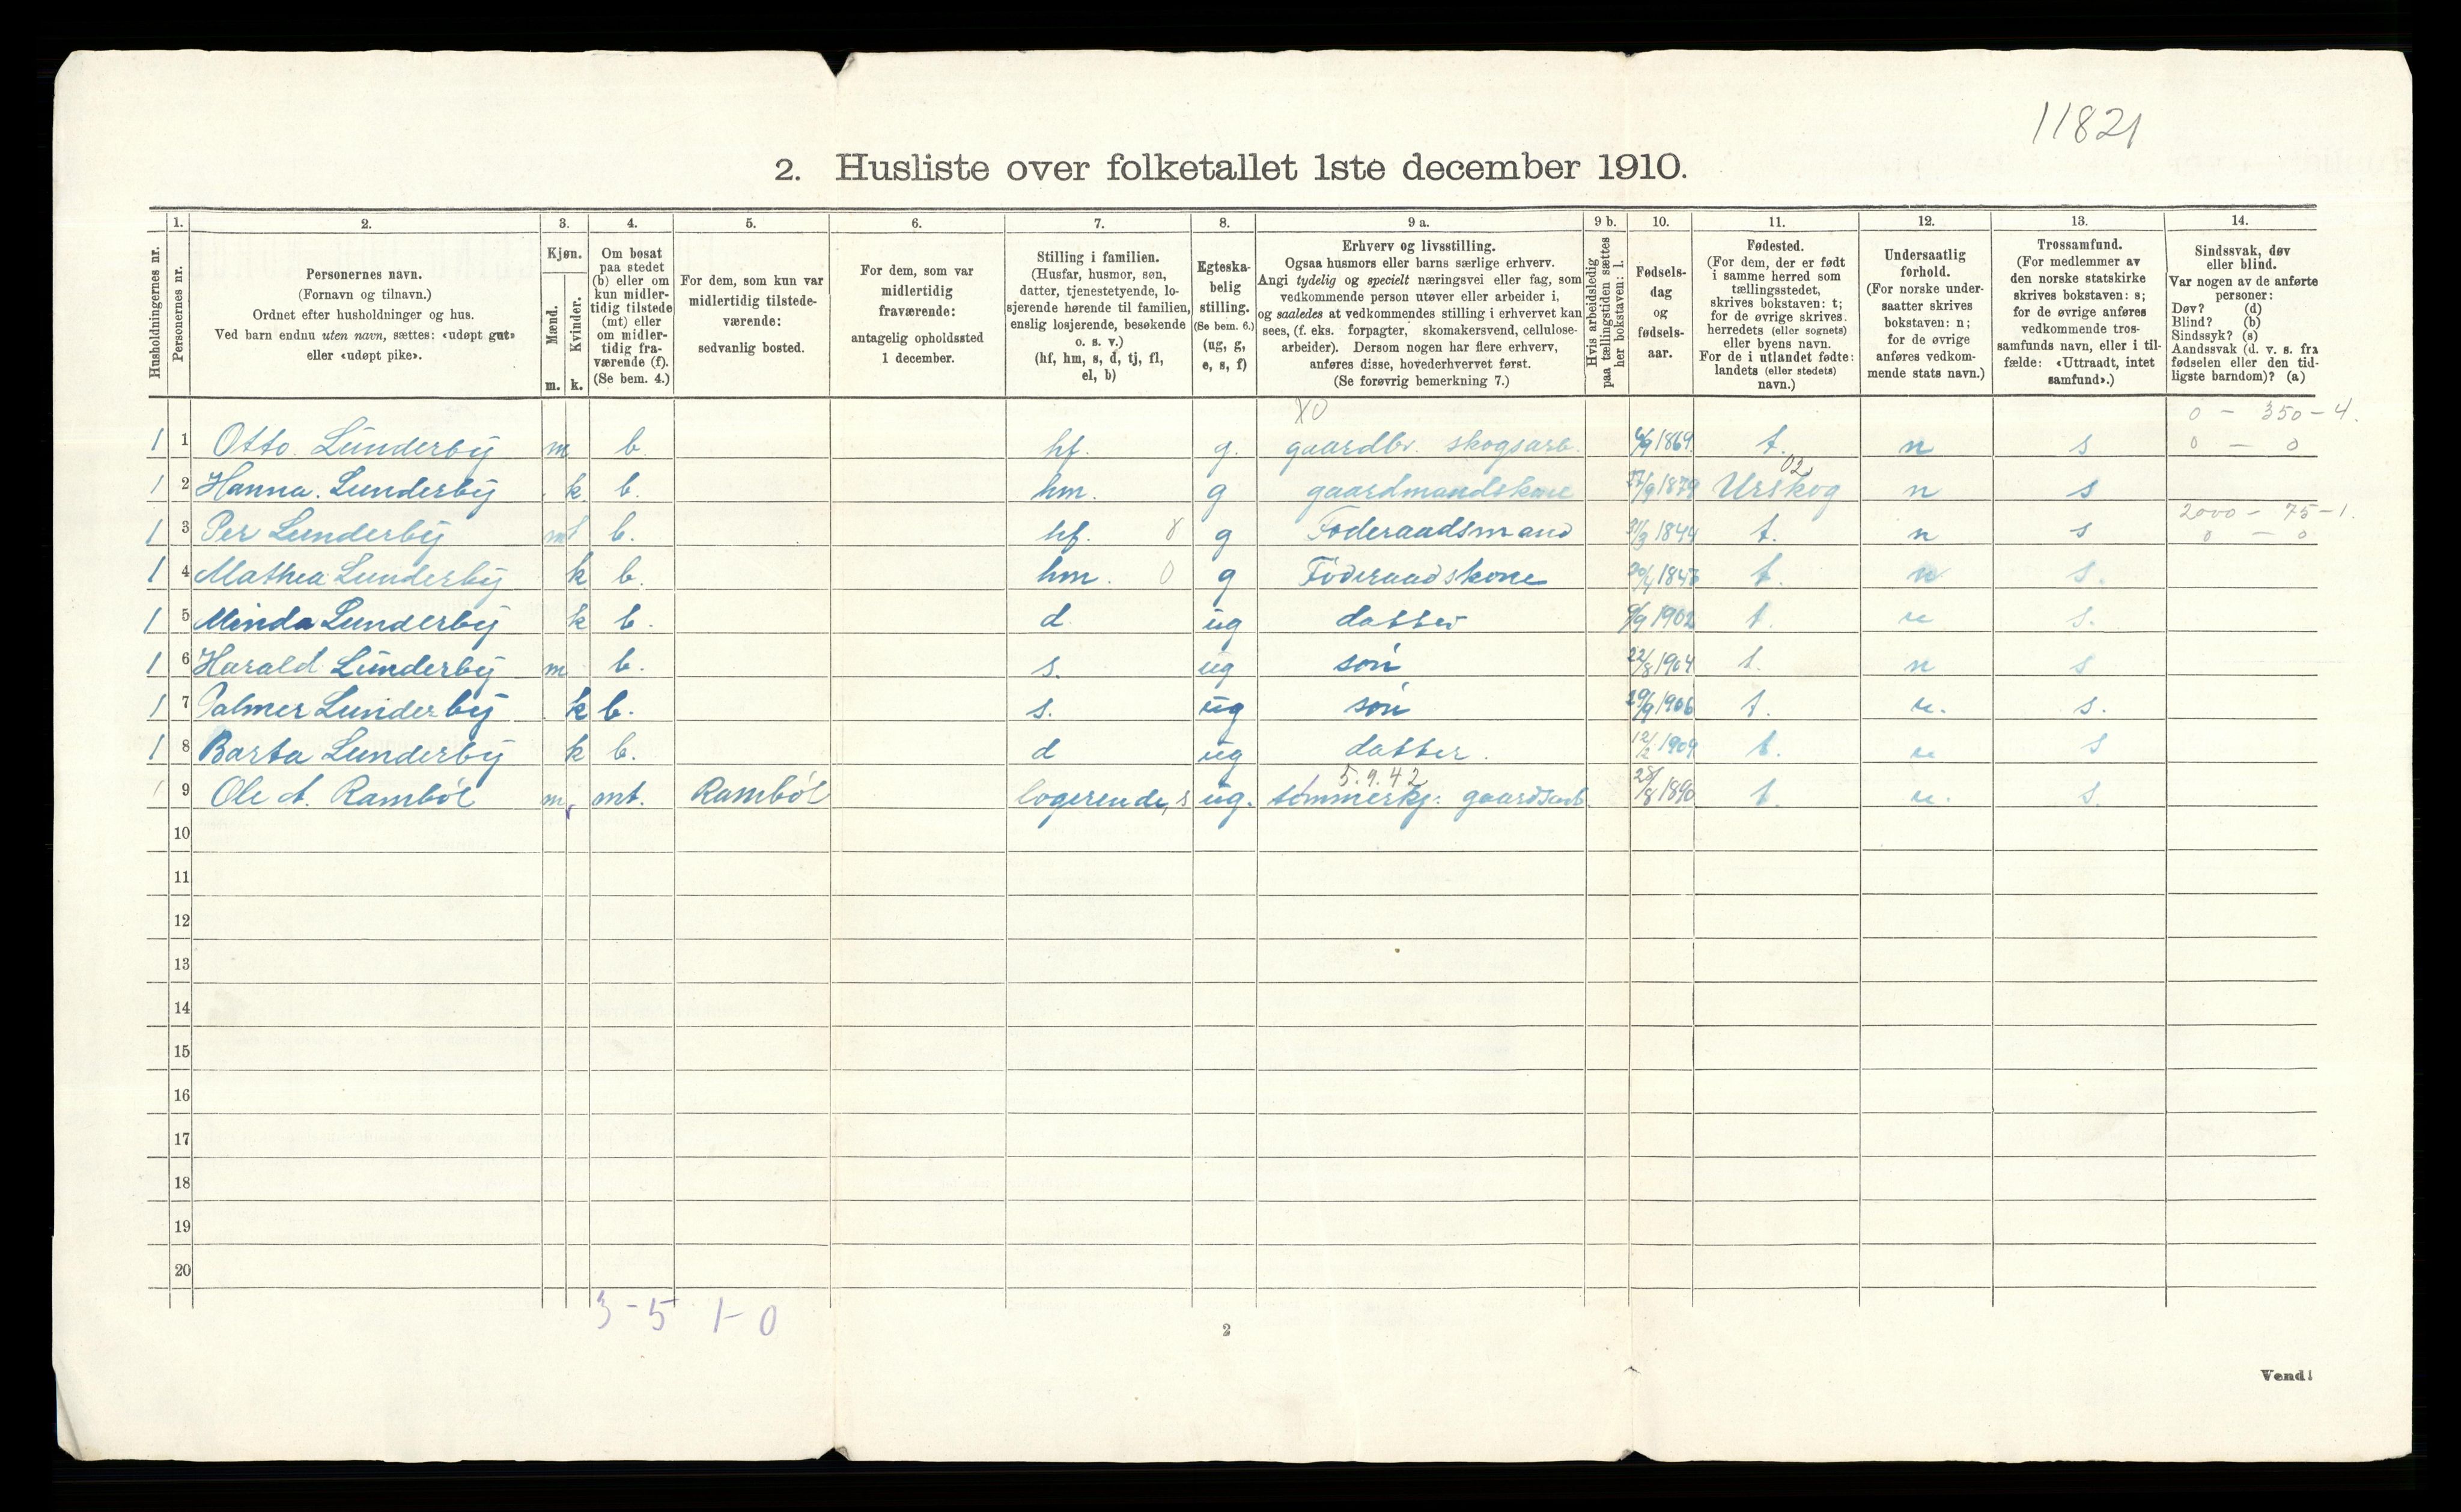 11821
2. Husliste over folketallet 1ste december 1910.
Husholdningernes nr.
1. Personernes nr.
2. Personernes navn.
(Fornavn og tilnavn.)
Ordnet efter husholdninger og hus.
Ved barn endnu uten navn, sættes: «udøpt gut»
eller «udøpt pike».
3. Kjøn.
Mænd. m.
Kvinder. k.
4. Om bosat
paa stedet
(b) eller om
kun midler-
tidig tilstede
(mt) eller
om midler-
tidig fra-
værende (f).
(Se bem. 4.)
5. For dem, som kun var
midlertidig tilstede-
værende:
sedvanlig bosted.
6. For dem, som var
midlertidig
fraværende:
antagelig opholdssted
1 december.
7. Stilling i familien.
(Husfar, husmor, søn,
datter, tjenestetyende, lo-
sjerende hørende til familien,
enslig losjerende, besøkende
o. s. v.)
(hf, hm, s, d, tj, fl,
el, b)
8. Egteska-
belig
stilling.
(Se bem. 6.)
(ug, g,
e, s, f)
9 a. Erhverv og livsstilling.
Ogsaa husmors eller barns særlige erhverv.
Angi tydelig og specielt næringsvei eller fag, som
vedkommende person utøver eller arbeider i,
og saaledes at vedkommendes stilling i erhvervet kan
sees, (f. eks. forpagter, skomakersvend, cellulose-
arbeider). Dersom nogen har flere erhverv,
anføres disse, hovederhvervet først.
(Se forøvrig bemerkning 7.)
9 b. Hvis arbeidsledig
paa tællingstiden sættes
her bokstaven: l.
10. Fødsels-
dag
og
fødsels-
aar.
11. Fødested.
(For dem, der er født
i samme herred som
tællingsstedet,
skrives bokstaven: t;
for de øvrige skrives
herredets (eller sognets)
eller byens navn.
For de i utlandet fødte:
landets (eller stedets)
navn.)
12. Undersaatlig
forhold.
(For norske under-
saatter skrives
bokstaven: n;
for de øvrige
anføres vedkom-
mende stats navn.)
13. Trossamfund.
(For medlemmer av
den norske statskirke
skrives bokstaven: s;
for de øvrige anføres
vedkommende tros-
samfunds navn, eller i til-
fælde: «Uttraadt, intet
samfund».)
14. Sindssvak, døv
eller blind.
Var nogen av de anførte
personer:
Døv? (d)
Blind? (b)
Sindssyk? (s)
Aandssvak (d. v. s. fra
fødselen eller den tid-
ligste barndom)? (a)
X0 0 - 350 - 4.
1 1 Otto Lunderby m b. hf. g. gaardbr. skogsarb. 1869 t. n s 0 - 0
02
1 2 Hanna Lunderby k b. hm. g gaardmandskone 27/9 1879 Urskog n s
2000 - 75 - 1.
1 3 Per Lunderby b. hf. g Foderaadsmand 31/3 1844 t. n s 0 - 0
1 4 Mathea Lunderby k b. hm. 0 g Föderaadskone t. n s.
1 5 Minda Lunderby k b. d ug datter 1902 t. n s.
1 6 Harald Lunderby m b. s. ug søn 22/8 1904 t. n s
1 7 Palmer Lunderby k b. s. ug søn 29/9 1906 t. n. s.
1 8 Barta Lunderby k b. d ug datter. 12/2 1909 t. n s
5.9.42
9 Ole A. Ramböl m mt. Ramböl logerende, s ug. tømmerkj: gaardsarb 28/8 1890 t. n. s.
10
11
12
13
14
15
16
17
18
19
20
3 - 5 1 - 0
2
Vend!